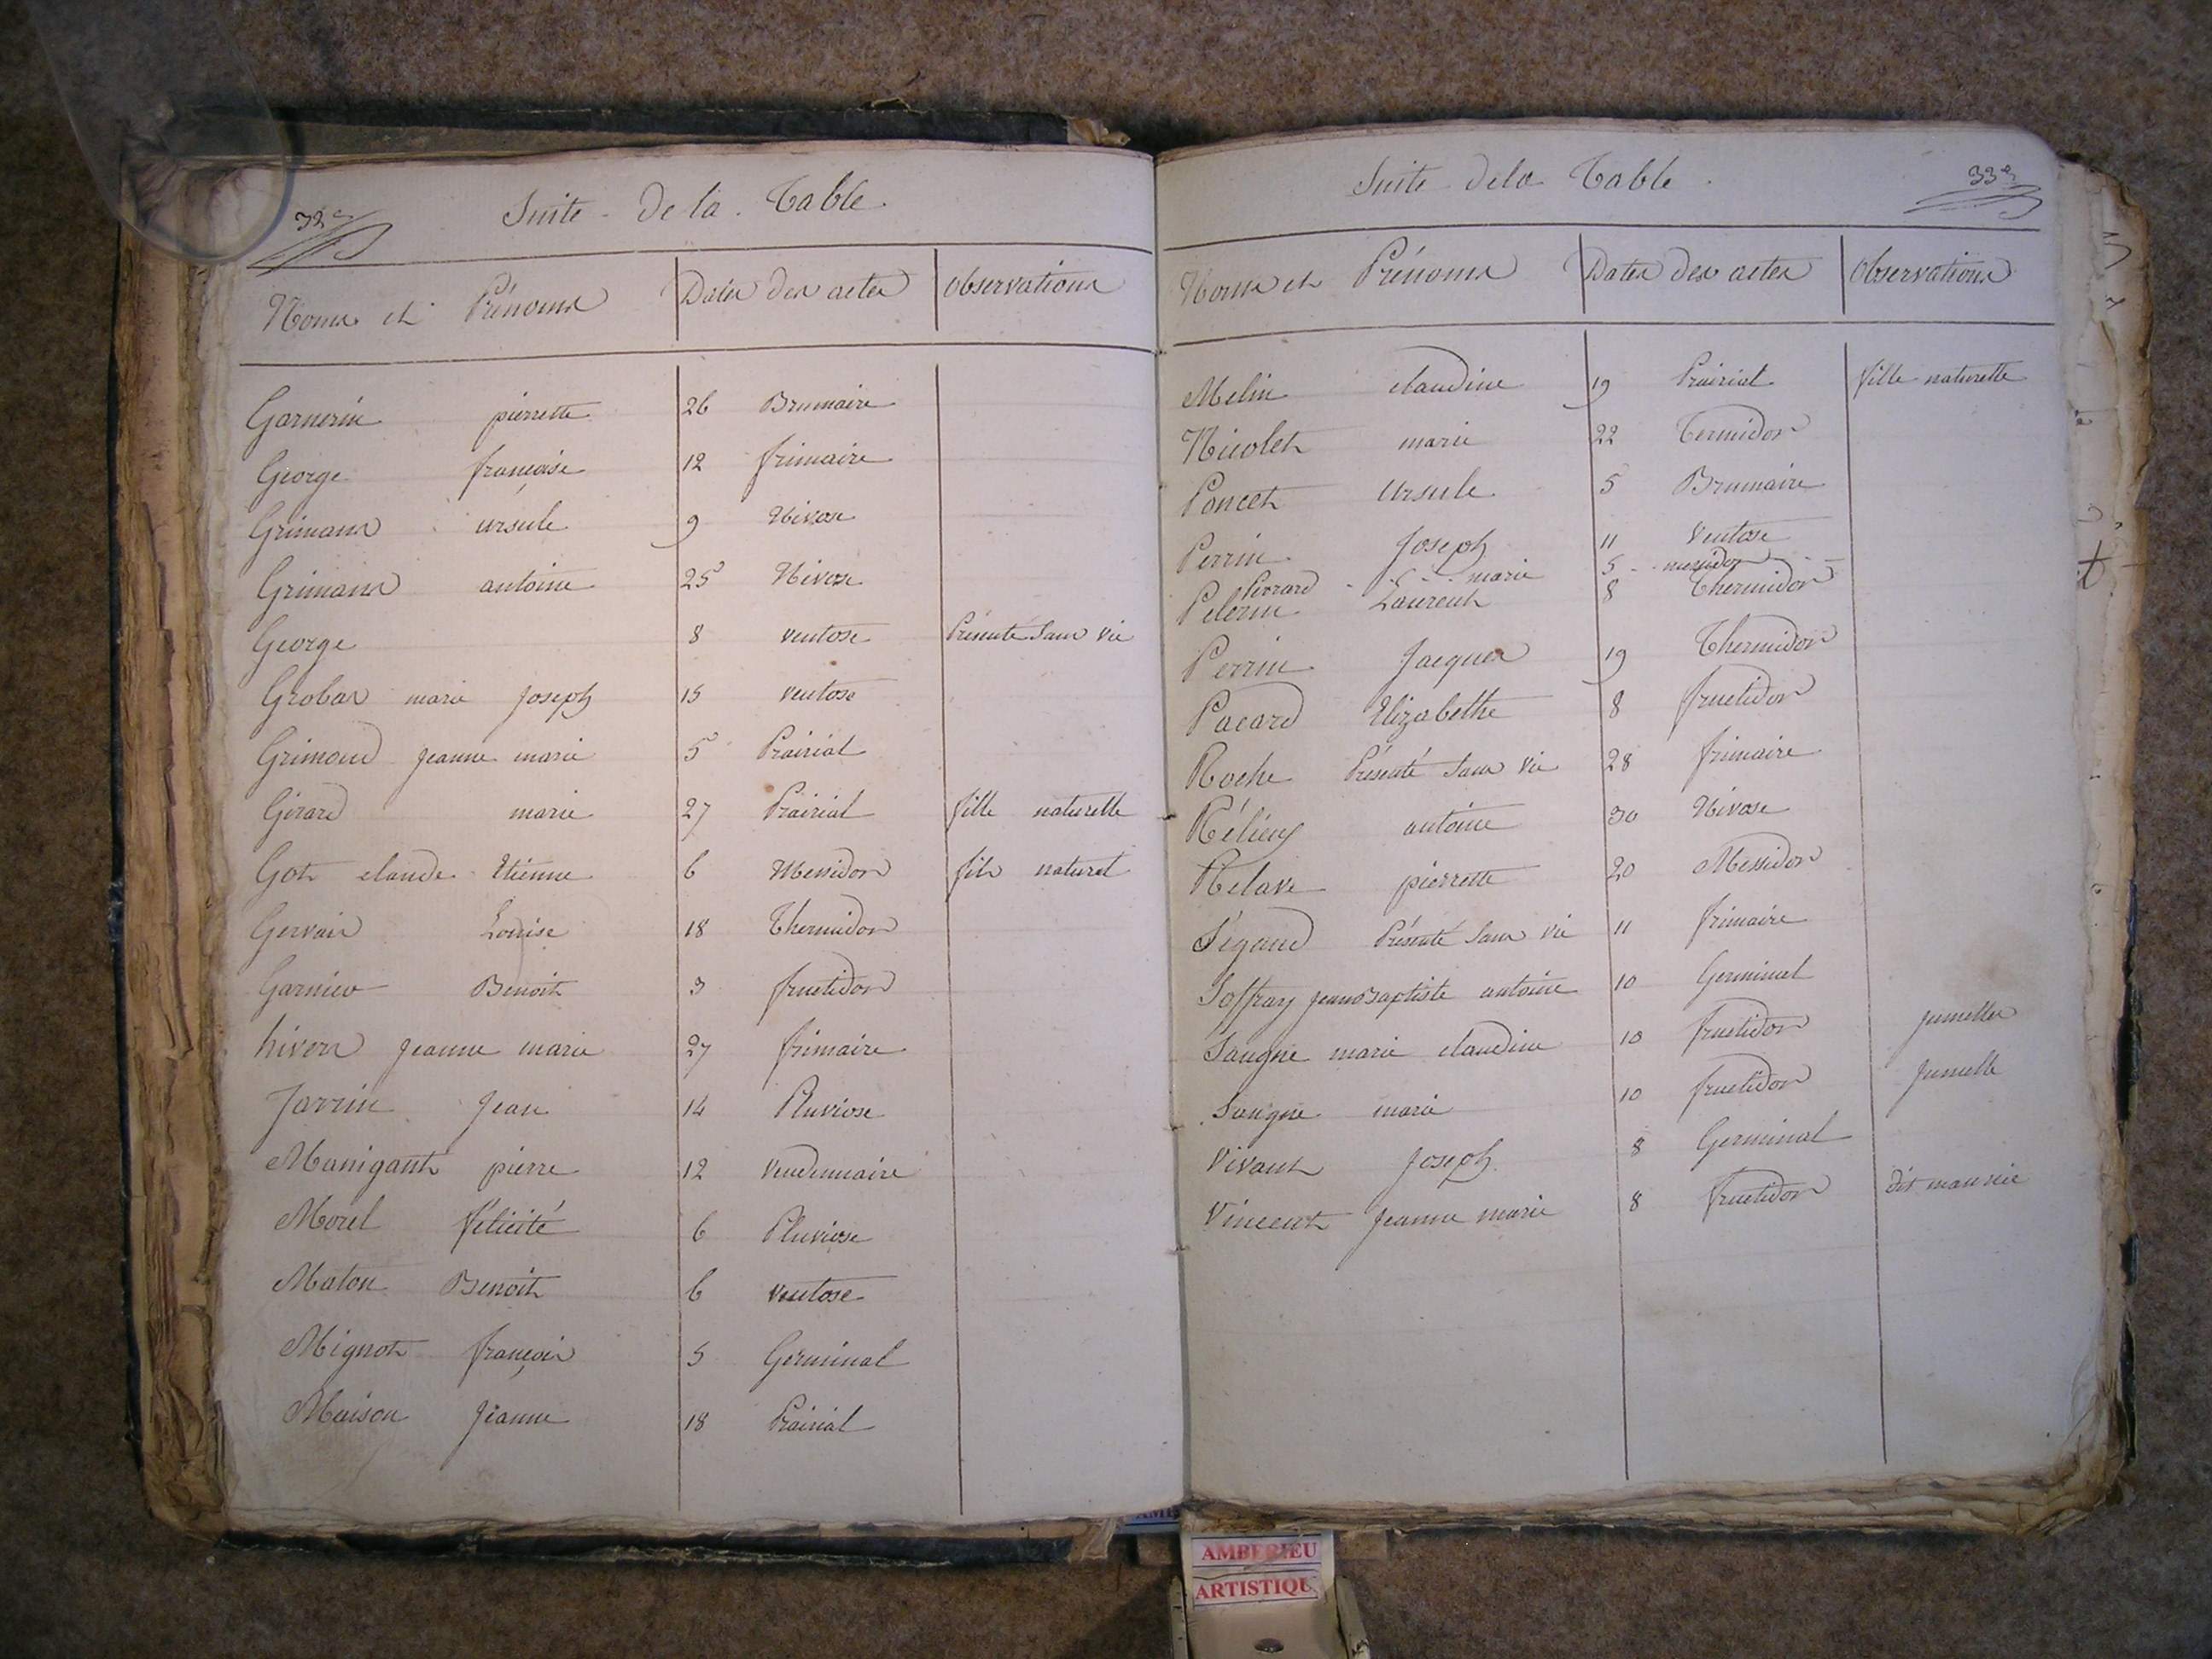 32e
Suite De la Table
Noms et Prénoms Dates des actes Observations
Garnerin pierrette 26 Brumaire
George françoise 12 frimaire
Grimaud ursule 9 Nivose
Grimaud antoine 25 Nivose
George 8 ventose Présenté Sans vie
Grobas marie Joseph 15 ventose
Grimaud Jeanne marie 5 Prairial
Girard marie 27 Prairial fille naturelle
Got claude Etienne 6 Messidor fils naturel
Gervais Louise 18 Thermidor
Garnier Benoit 3 fructidor
hivers Jeanne marie 27 frimaire
Jarrin Jean 14 Pluviose
Manigant pierre 12 vendemiaire
Morel félicité 6 Pluviose
Maton Benoit 6 ventose
Mignot françois 5 Germinal
Maison Jeanne 18 Prairial
33e
Suite de la Table
Noms et Prénoms Dates des actes Observations
Melin claudine 19 Prairial fille naturelle
Nicolet marie 22 Termidor
Poncet Ursule 5 Brumaire
Perrin Joseph 11 Ventose
Perrard marie 5 messidor
Pelerin Laurent 8 Thermidor
Perrin Jacques 19 Thermidor
Pacard Elizabethe 8 fructidor
Roche Présenté Sans vie 28 frimaire
antoine 30 Nivose
Relave pierrette 20 Messidor
Ségaud Présenté Sans vie 11 frimaire
Soffray jean Baptiste antoine 10 Germinal
Saugne marie claudine 10 fructidor jumelles
Saugne marie 10 fructidor jumelle
Vivant Joseph 8 Germinal
Vincent Jeanne marie 8 fructidor
AMBERIEU
ARTISTIQU